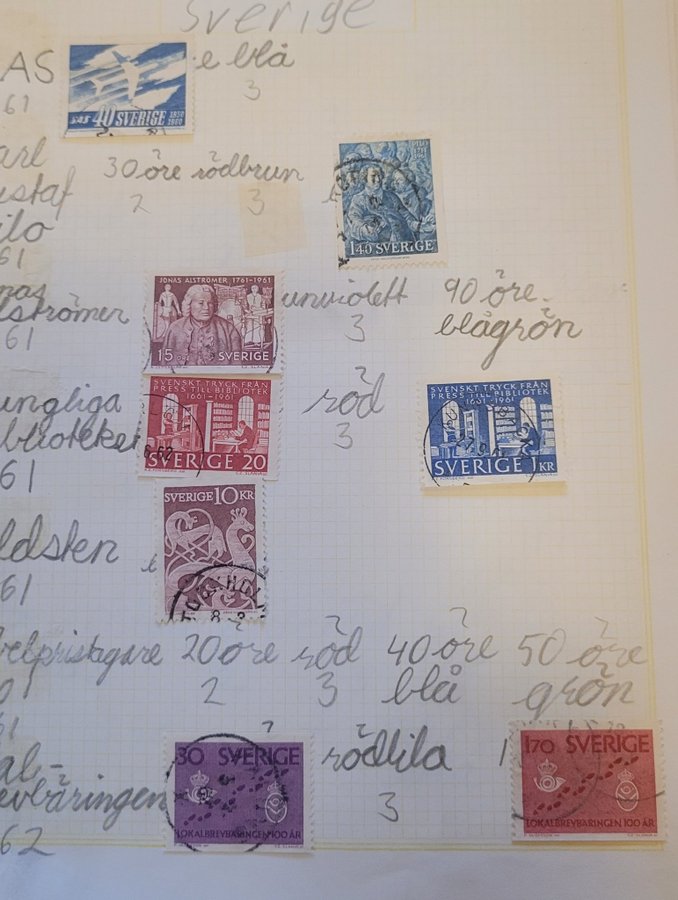 Sverige
AS
e blå
61
3
SAS 40 SVERIGE 1950 1960
arl
ustaf
ilo
61
30 öre rödbrun
2 3
1.40 SVERIGE
nas
lströmer
61
JONAS ALSTRÖMER 1761-1961
15 ÖRE SVERIGE
unviolett
3
90 öre
blågrön
ungliga
bliotekei
61
SVENSKT TRYCK FRÅN
PRESS TILL BIBLIOTEK
1661-1961
SVERIGE 20
röd
3
SVENSKT TRYCK FRÅN
PRESS TILL BIBLIOTEK
1661-1961
SVERIGE 1 KR
ldsten
61
SVERIGE 10 KR
belpristagare 20 öre röd 40 öre 50 öre
2 3 blå grön
61
al-
evbäringen
62
30 SVERIGE
LOKALBREVBÄRINGEN 100 ÅR
rödlila
3
170 SVERIGE
LOKALBREVBÄRINGEN 100 ÅR